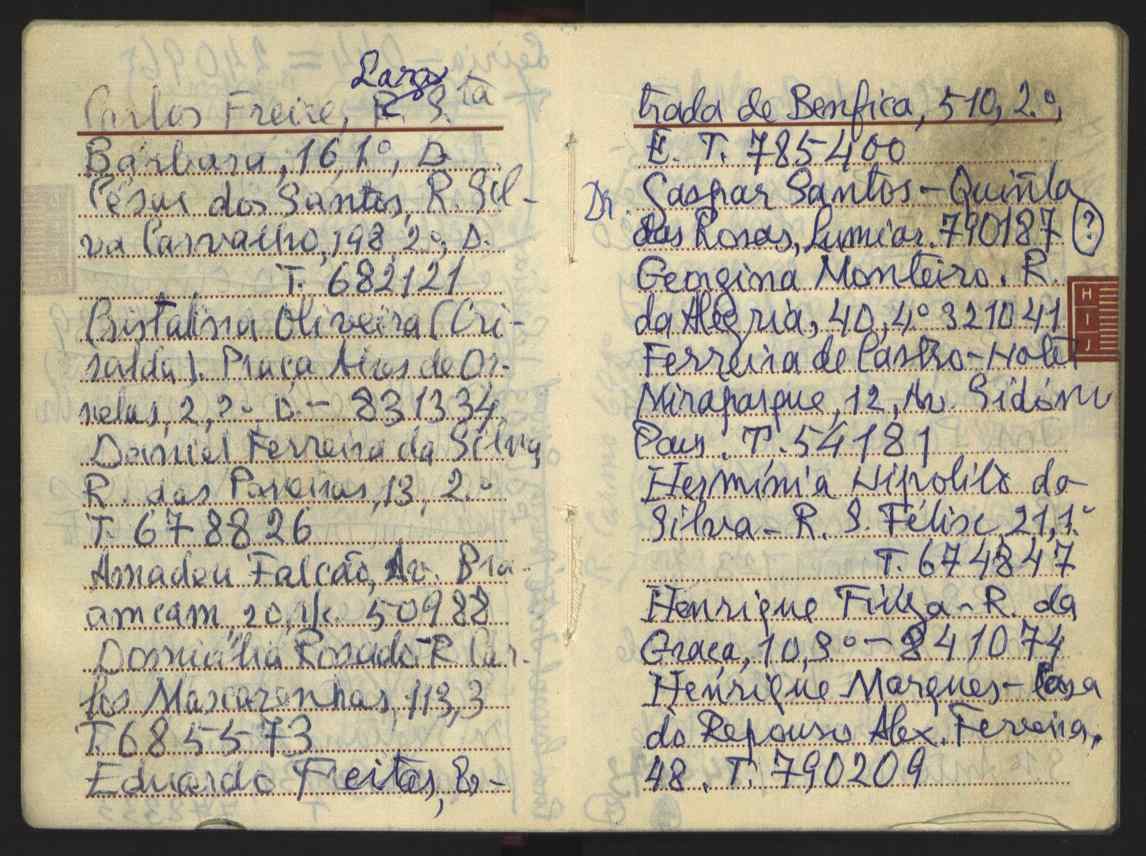 Largo
Carlos Freire, R. S.ta
Bárbara, 16, 1º, D.
César dos Santos, R. Sil-
va Carvalho, 198 2º, D.
T. 682121
Cristalina Oliveira (Cri-
salda). Praça Aires de Or-
nelas, 2, 2º D. - 831334
Daniel Ferreira da Silva
R. das Parreiras, 13, 2.º
T. 678826
Amadeu Falcão, Av. Bra-
amcam, 20, r/c. 50988
Domicília Rosado - R. Car-
los Mascarenhas, 113, 3
T. 685573
Eduardo Freitas, Es-
trada de Benfica, 510, 2.º,
E. T. 785400
Dr. Gaspar Santos - Quinta
das Rosas, Lumiar. 790187 (?)
Georgina Monteiro. R.
da Alegria, 40, 4º 321041
Ferreira de Castro - Hotel
Miraparque, 12, Av. Sidónio
Pais. T. 54181
Hermínia Hipólito da
Silva - R. S. Félix 21, 1.º
T. 674847
Henrique - R. da
Graça, 10, 3º - 841074
Henrique Marques - Casa
do Repouso Alex. Ferreira,
48. T. 790209
H
I
J